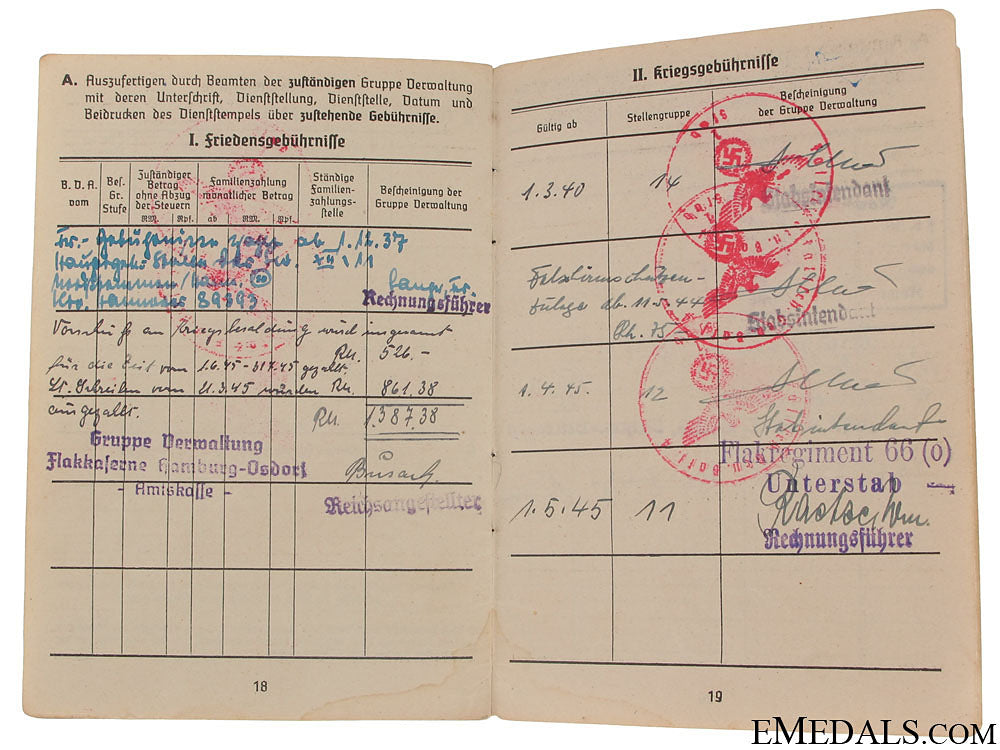 A. Auszufertigen durch Beamten der zuständigen Gruppe Verwaltung
mit deren Unterschrift, Dienststellung, Dienststelle, Datum und
Beidrucken des Dienststempels über zustehende Gebührnisse.
I. Friedensgebührnisse
B. D. A. vom
Bes. Gr. Stufe
Zuständiger Betrag ohne Abzug der Steuern
RM. Rpf.
Familienzahlung monatlicher Betrag
ab RM. Rpf.
Ständige Familienzahlungsstelle
Bescheinigung der Gruppe Verwaltung
Fr.-Gebührnisse ab 1.12.37
XII \ 11
89393
Rechnungsführer
Vorschuß an Kriegsbesoldung wird insgesamt
für die Zeit vom 1.6.45 - 31.7.45 gezahlt. RM. 526.-
lt. Schreiben vom 21.3.45 wurden RM. 861.38
ausgezahlt. RM. 1387.38
Gruppe Verwaltung
Flakkaserne Hamburg-Osdorf
- Amtskasse -
Reichsangestellter
18
II. Kriegsgebührnisse
Gültig ab
Stellengruppe
Bescheinigung der Gruppe Verwaltung
1.3.40 14
Stabsintendant
Fallschirmschützen-
zulage ab 11.5.44
RM. 75
Stabsintendant
1.4.45 12
Stabsintendant
Flakregiment 66 (o)
Unterstab
1.5.45 11
Rechnungsführer
19
EMEDALS.COM